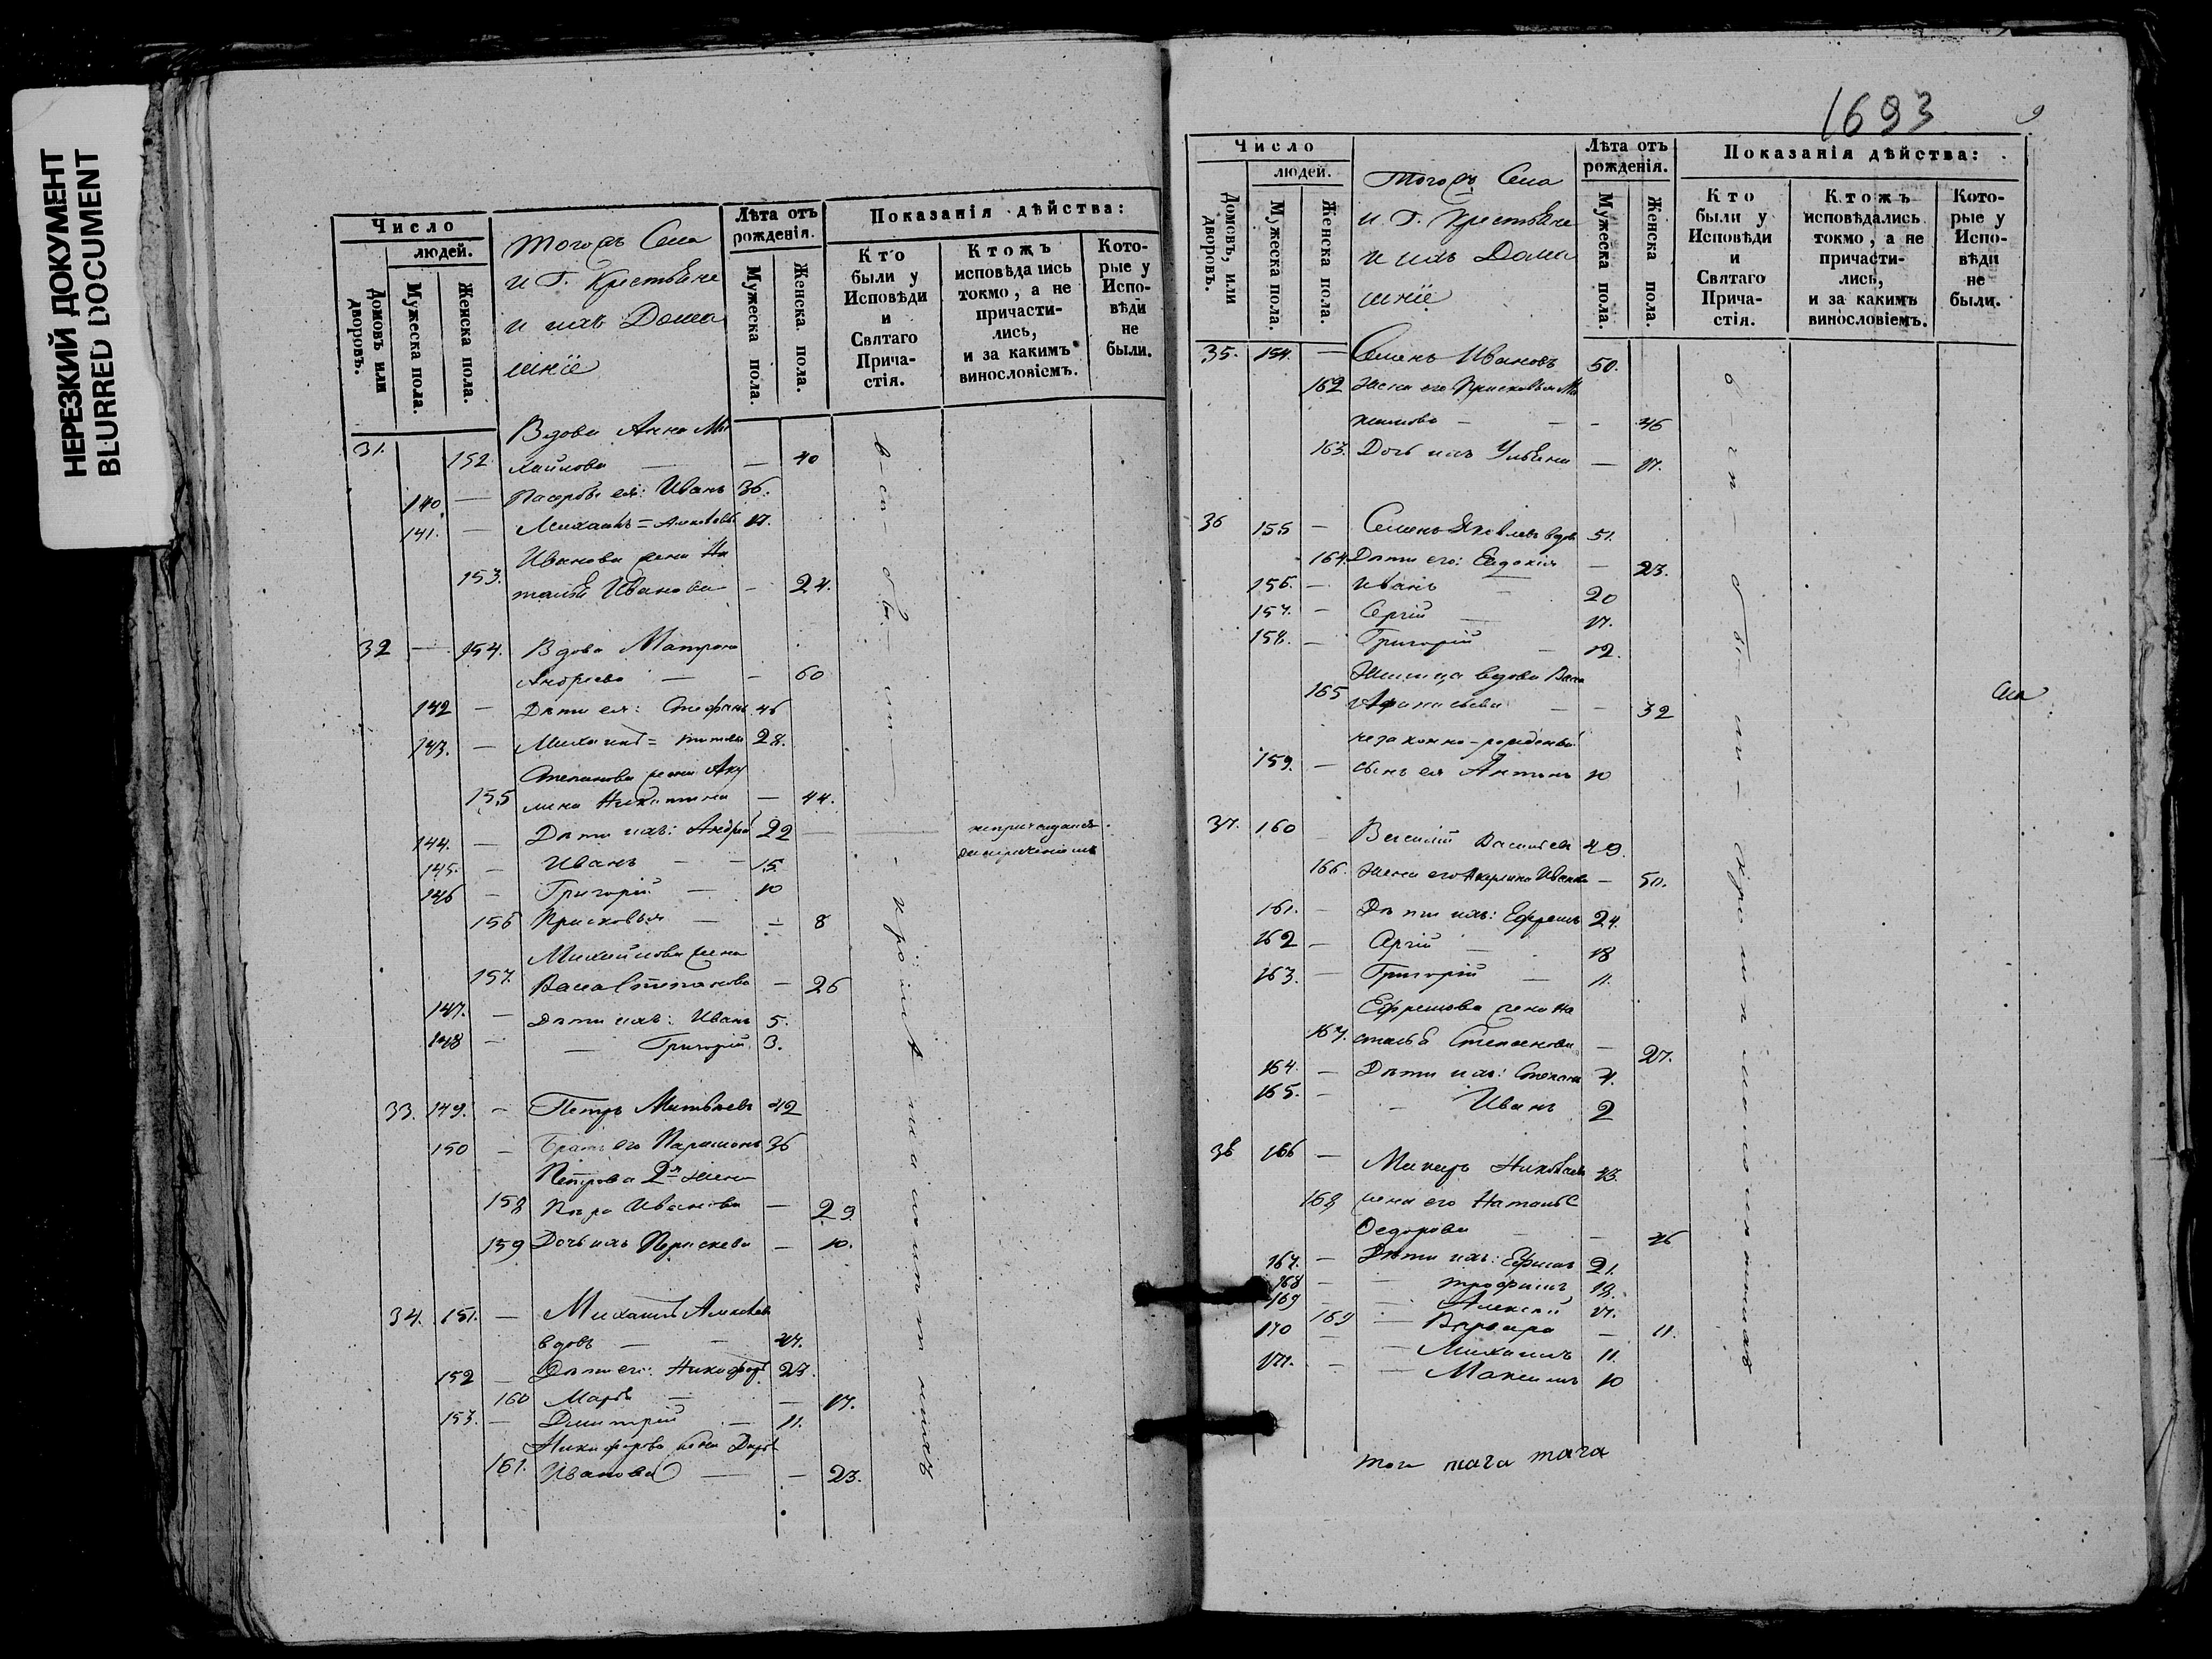 НЕРЕЗКИЙ ДОКУМЕНТ
BLURRED DOCUMENT
Число
людей.
Домовъ или дворовъ.
Мужеска пола.
Женска пола.
Тогожъ Села
и Г. Крестьяне
и ихъ Дома
шніе
Лѣта отъ рожденія.
Мужеска пола.
Женска пола.
Показанія дѣйства:
Кто были у Исповѣди и Святаго Прича-стія.
Ктожъ исповѣдались токмо, а не причасти-лись, и за какимъ винословіемъ.
Кото-рые у Испо-вѣди не были.
31. Вдова Анна Ми
152. хайлова — — 40
140 — Пасербы ея: Иванъ 36.
141. — Михаилъ = 17.
Иванова жена На
153. талья Иванова — 24.
32 — 154. Вдова Матрона
Андреева — — 60
142 — Дѣти ея: Стефанъ 46
143. — Михаилъ = 28.
Степанова жена Аку
155 лина Никитина — 44.
144. — Дѣти ихъ: Андрей 22 —
145. — Иванъ — — 15.
146 — Григорій — 10
156 Присковья — — 8
Михайлова жена
157. Васса Степанова — 26
147. — Дѣти ихъ: Иванъ 5.
148 — — Григорій 3.
33. 149. — Петръ Матвѣевъ 42
150 — Братъ его Парамонъ 36
Петрова 2я жена
158 Вѣра Иванова — 29
159 Дочь ихъ Параскева — 10.
34. 151. — Михаилъ Алексѣевъ
вдовъ — — 47.
152 — Дѣти его: Никифоръ 23.
160 Марья — — 17.
153. — Дмитрій — 11.
Никифорова жена Дарья
161. Иванова — — 23.
1693
Число
людей.
Домовъ, или дворовъ.
Мужеска пола.
Женска пола.
Тогожъ Села
и Г. Крестьяне
и ихъ Дома
шніе
Лѣта отъ рожденія.
Мужеска пола.
Женска пола.
Показанія дѣйства:
Кто были у Исповѣди и Святаго Прича-стія.
Ктожъ исповѣдались токмо, а не причасти-лись, и за какимъ винословіемъ.
Кото-рые у Испо-вѣди не были.
35. 154. — Семенъ Ивановъ 50.
162 Жена его Присковья Ма
ксимова — — — 46
163. Дочь ихъ Ульяна — 17.
36 155 — Семенъ Яковлевъ вдов. 51.
164. Дѣти его: Евдокія — 23.
156. — Иванъ — 20
157. — Сергій — 17.
158. — Григорій — 12.
Жилица вдова Васса
165 Афанасьева — — 32
незаконно-рожденный
159. — сынъ ея Антонъ 10
37. 160 — Василій Васильевъ 49.
166. Жена его Акулина Иванова — 50.
161. — Дѣти ихъ: Ефремъ 24.
162 — Сергій — 18
163. — Григорій — 11.
Ефремова жена На
167. сталья Степанова — 27.
164. — Дѣти ихъ: Степанъ 4.
165. — — Иванъ 2
38 166 — Макаръ Николаевъ 43.
168 жена его Наталья
Федорова — — 46
167. — Дѣти ихъ: Ефимъ 21.
168 — — Трофимъ 19.
169 — — Алексѣй 17.
169 — Варвара — 11.
170 — — Михаилъ 11.
171. — — Максимъ 10